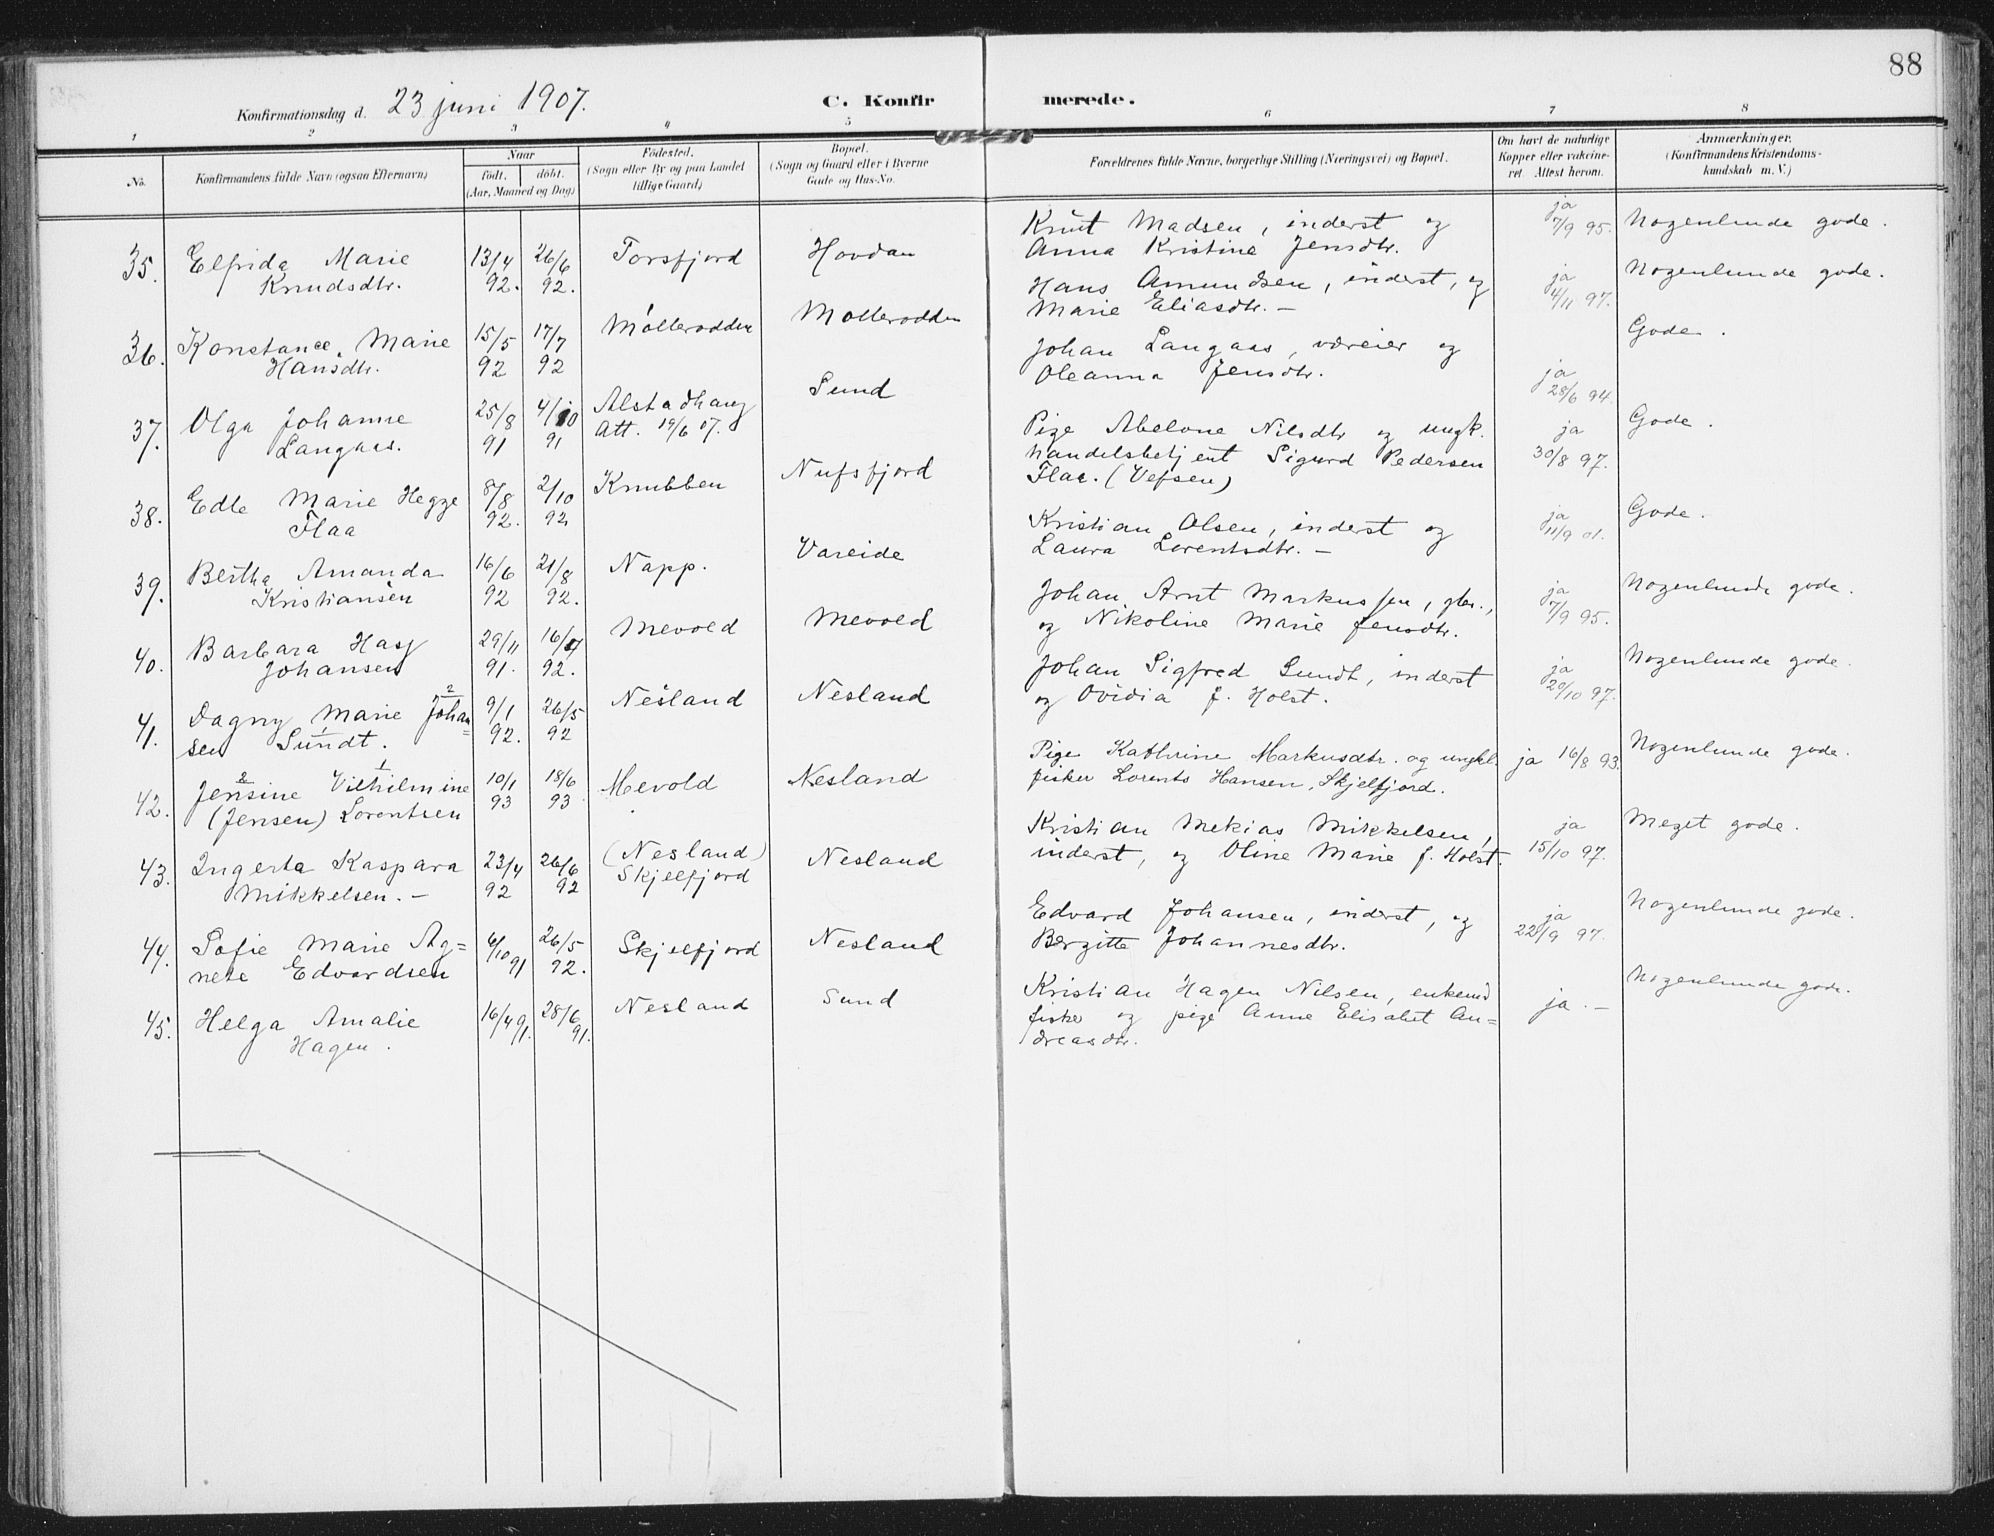 88
Konfirmationsdag d. 23 juni 1907. C. Konfirmerede.
1 2 3 4 5 6 7 8
No. Konfirmandens fulde Navn (ogsaa Efternavn) Naar født. døbt. (Aar, Maaned og Dag) Fødested. (Sogn eller By og paa Landet tillige Gaard) Bopæl. (Sogn og Gaard eller i Byerne Gade og Hus-No. Forældrenes fulde Navne, borgerlige Stilling (Næringsvei) og Bopæl. Om havt de naturlige Kopper eller vakcineret. Attest herom. Anmærkninger. (Konfirmandens Kristendomskundskab m. V.)
35. Elfrida Marie Knudsdtr. 13/4 92. 26/6 92. Torsfjord Hovdan Knut Madsen, inderst og Anna Kristine Jensdtr. ja 7/9 95. Nogenlunde gode.
36. Konstance Marie Hansdtr. 15/5 92 17/7 92 Møllerodden Møllerodden Hans Amundsen, inderst, og Marie Eliasdtr. – ja 4/11 97. Nogenlunde gode.
37. Olga Johanne Langaas. 25/8 91 4/10 91 Alstadhaug Att. 19/6 07. Sund Johan Langaas, væreier og Oleanna Jensdtr. ja 28/6 94. Gode.
38. Edle Marie Hegge Flaa 8/8 92. 2/10 92 Knubben Nufsfjord Pige Abelone Nilsdtr og ungk. handelsbetjent Sigurd Pedersen Flaa. (Vefsen) ja 30/8 97. Gode.
39. Bertha Amanda Kristiansen 16/6 92 21/8 92. Napp. Vareide Kristian Olsen, inderst og Laura Lorentsdtr. – ja 11/9 01. Gode.
40. Barbara Hasj Johansen 29/11 91. 16/ 92. Mevold Mevold Johan Arnt Markussen, gbr., og Nikoline Marie Jensdtr. ja 7/9 95. Nogenlunde gode.
41. Dagny Marie Johan= sen Sundt. 9/1 92. 26/5 92 Nesland Nesland Johan Sigfred Sundt, inderst og Ovidia f. Holst. ja 29/10 97. Nogenlunde gode.
42. Jensine Vilhelmine (Jensen) Lorentsen 10/1 93 18/6 93 Mevold Nesland Pige Kathrine Markusdtr. og ungkl. fisker Lorents Hansen, Skjelfjord. ja 16/8 93. Nogenlunde gode.
43. Ingerta Kaspara Mikkelsen. – 23/4 92 26/6 92 (Nesland) Skjelfjord Nesland Kristian Mekias Mikkelsen, inderst, og Oline Marie f. Holst. ja 15/10 97. Meget gode.
44. Sofie Marie Ag= nete Edvardsen 6/10 91 26/5 92. Skjelfjord Nesland Edvard Johansen, inderst, og Bergitte Johannesdtr. ja 22/9 97. Nogenlunde gode.
45. Helga Amalie Hagen. 16/4 91. 28/6 91. Nesland Sund Kristian Hagen Nilsen, enkemd fisker og pige Anne Elisabet An= dreasdtr. ja. – Nogenlunde gode.